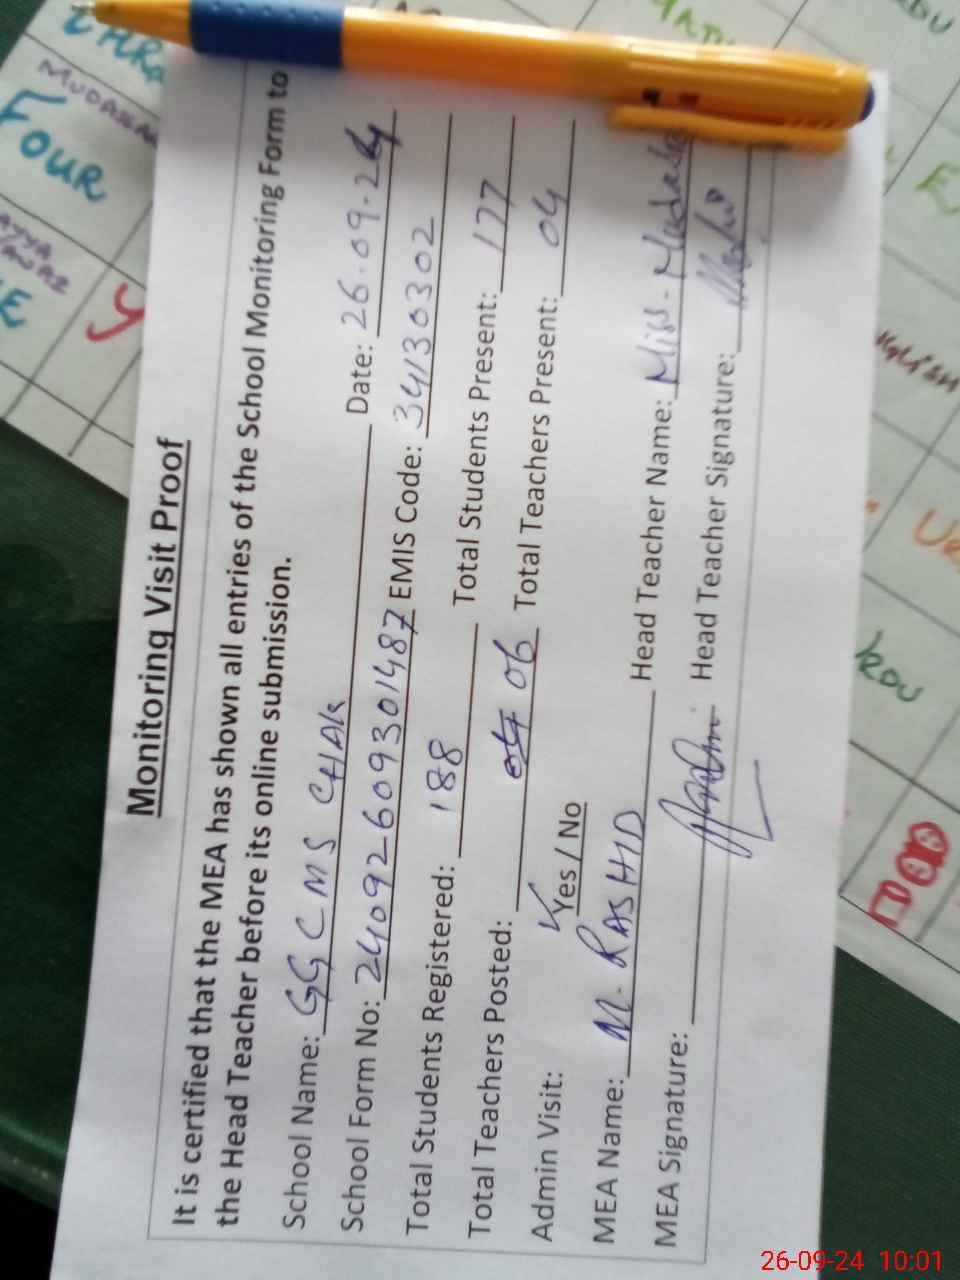 Monitoring Visit Proof
It is certified that the MEA has shown all entries of the School Monitoring Form to
the Head Teacher before its online submission.
School Name: GGCMS CHAK Date: 26.09.24
School Form No: 24092609301487 EMIS Code: 34130302
Total Students Registered: 188 Total Students Present: 177
Total Teachers Posted: 06 Total Teachers Present: 04
Admin Visit: Yes / No
MEA Name: M. RASHID Head Teacher Name: Miss.
MEA Signature: Head Teacher Signature:
FOUR
26-09-24 10:01